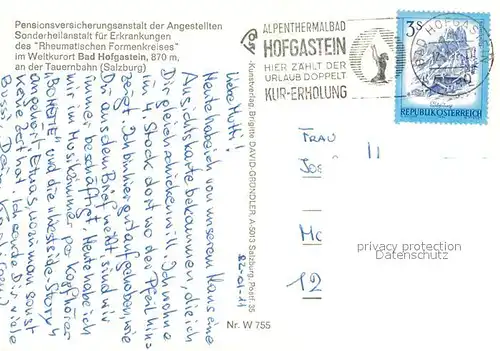 Pensionsversicherungsanstalt der Angestellten
Sonderheilanstalt für Erkrankungen
des "Rheumatischen Formenkreises"
im Weltkurort Bad Hofgastein, 870 m,
an der Tauernbahn (Salzburg)
ALPENTHERMALBAD
HOFGASTEIN
HIER ZÄHLT DER
URLAUB DOPPELT
KUR-ERHOLUNG
3s
REPUBLIK ÖSTERREICH
BAD HOFGASTEIN
82-01-11
Liebe Mutti!
Heute habe ich von unserem Haus eine
Ansichtskarte bekommen, die ich
Dir gleich schicken will. Ich wohne
im 4. Stock dort wo der Pfeil hin
zeigt. Ich bin hier gut aufgehoben, wie
Du aus dem Brief siehst, sind wir
immer beschäftigt. Heute habe ich
mir im Musikzimmer per Kopfhörer
"BOHEME" und die "Westside-Story"
angehört. Etwas, wozu man sonst
keine Zeit hat. Ich sende Dir viele
Bussi, Dein
Kunstverlag Brigitte DAVID-GRÜNDLER, A-5013 Salzburg, Postf. 35
Nr. W 755
FRAU
12
privacy protection
Datenschutz